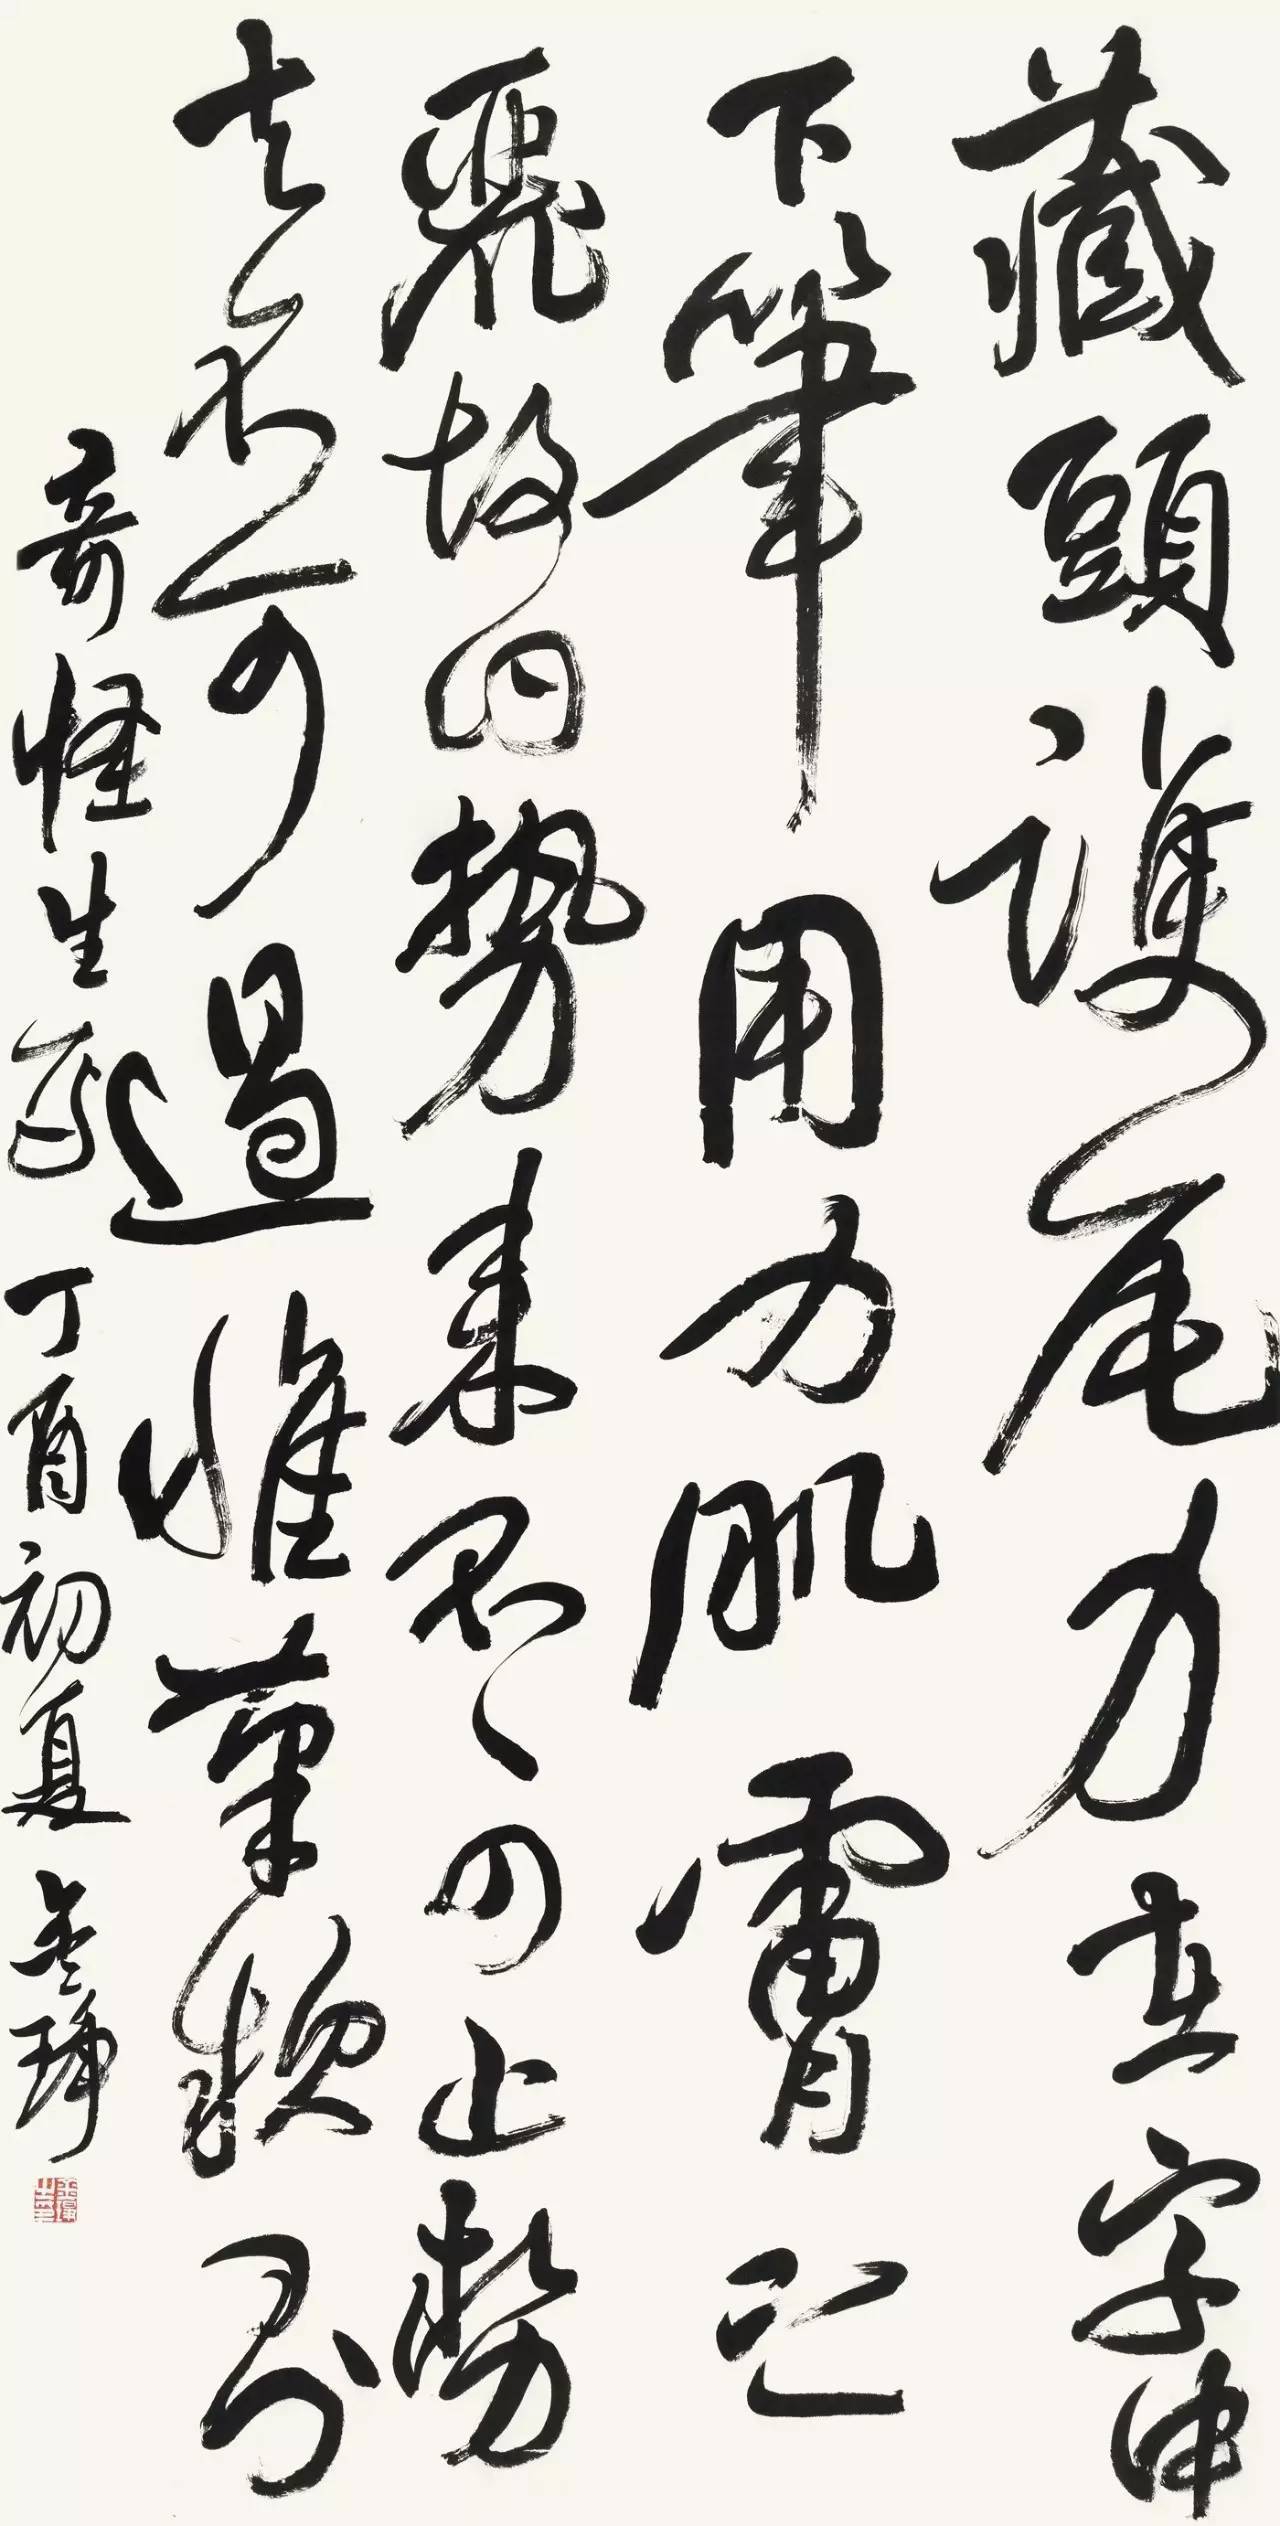 藏頭護尾力在字中
下筆用力肌膚之
麗故曰勢来不可止勢
去不可遏惟筆軟則
奇怪生焉 丁酉初夏